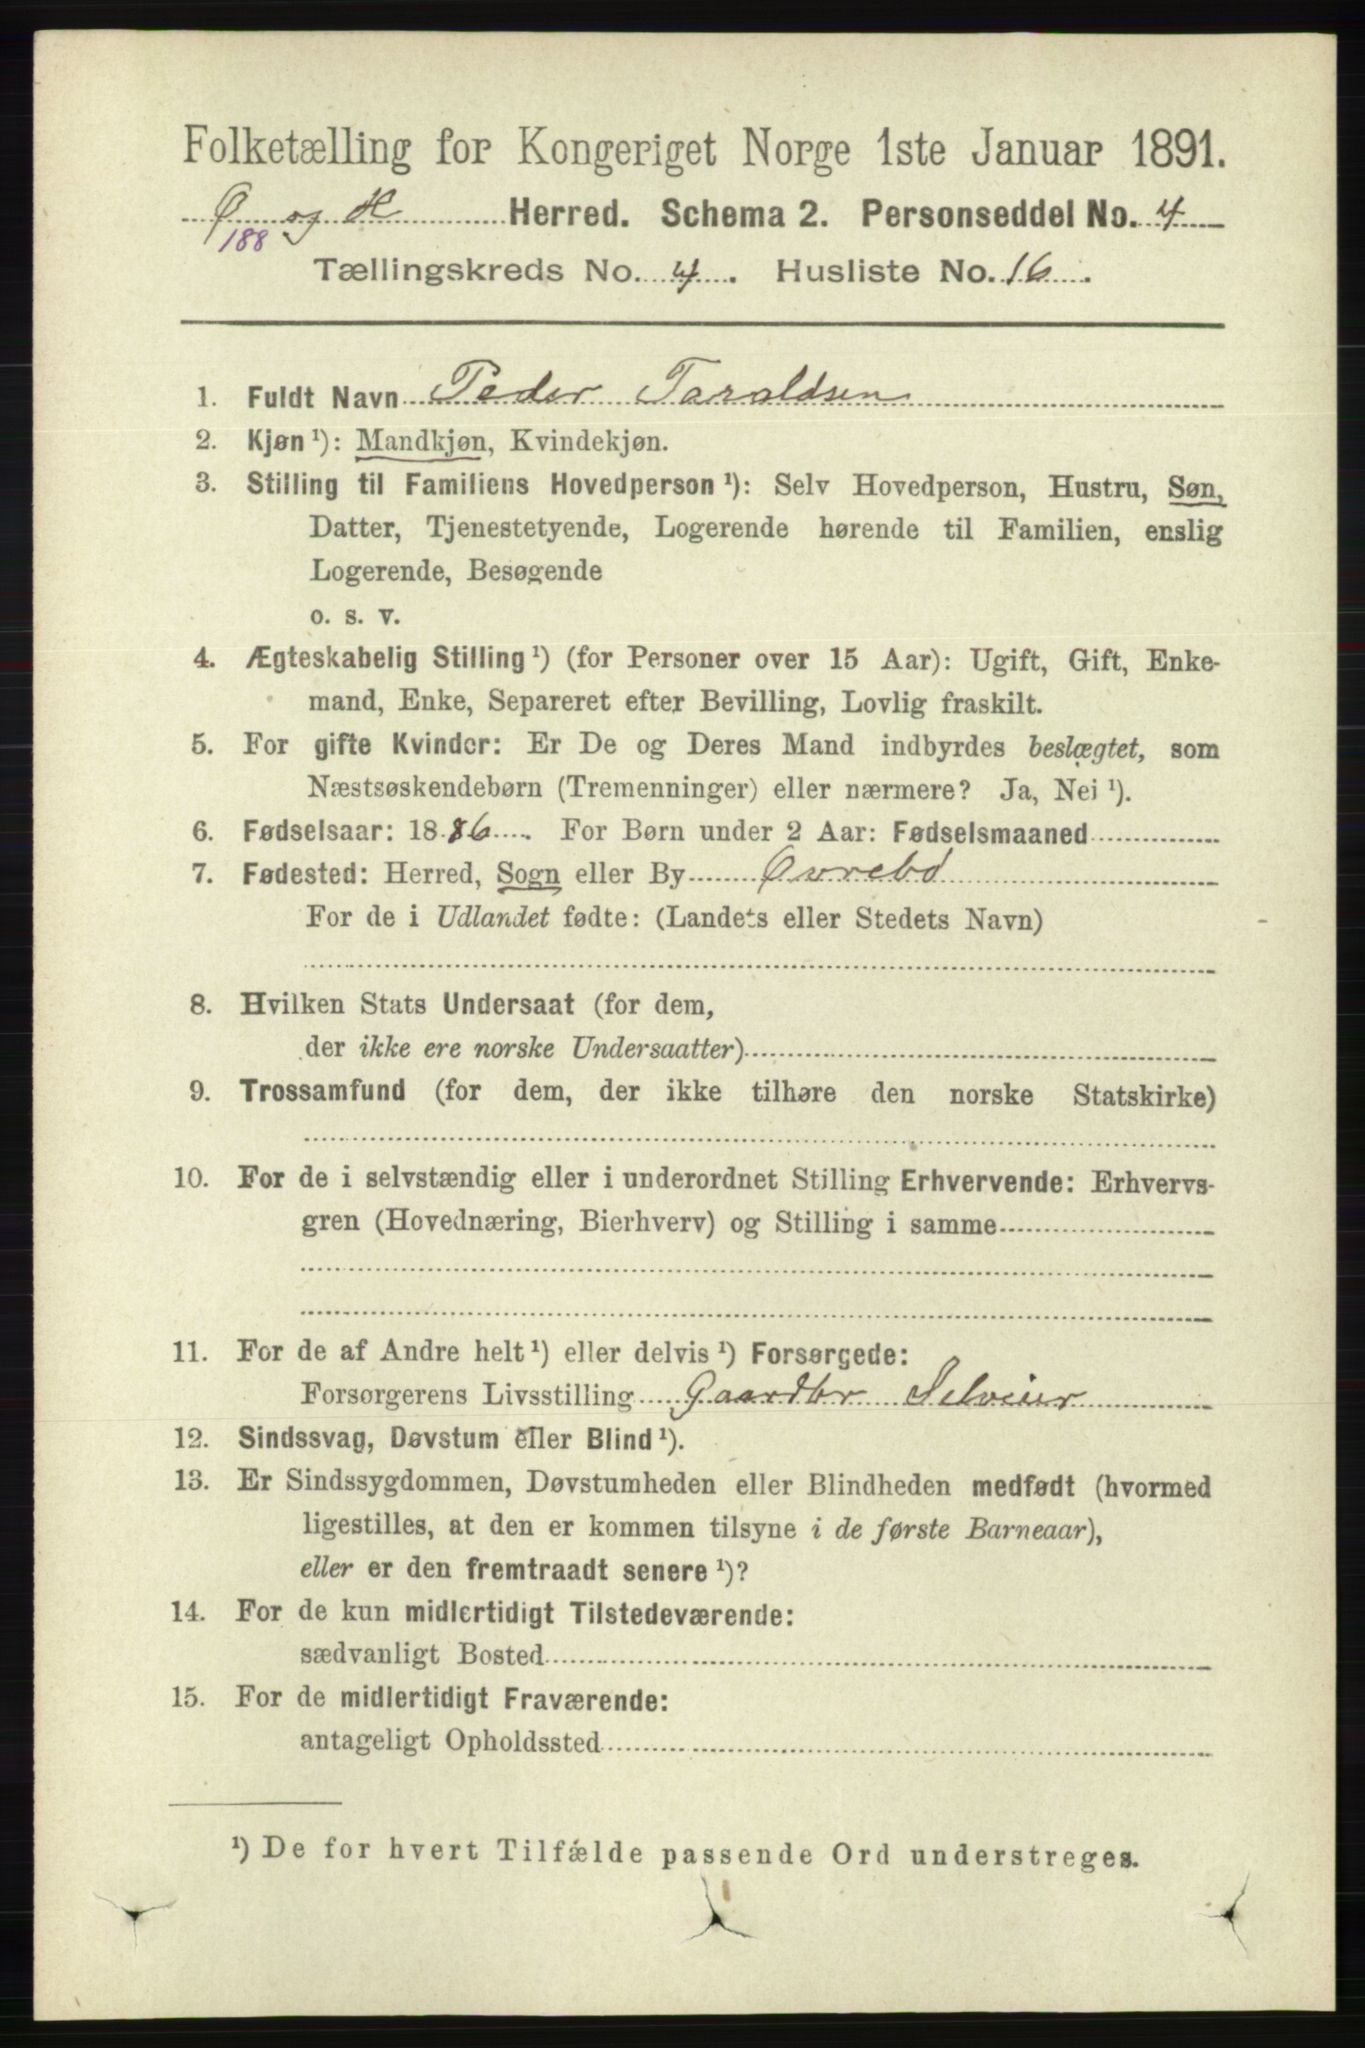 Folketælling for Kongeriget Norge 1ste Januar 1891.
Ø og H Herred. Schema 2. Personseddel No. 4
188
Tællingskreds No. 4. Husliste No. 16.
1. Fuldt Navn Peder Taraldsen
2. Kjøn ¹): Mandkjøn, Kvindekjøn.
3. Stilling til Familiens Hovedperson ¹): Selv Hovedperson, Hustru, Søn,
Datter, Tjenestetyende, Logerende hørende til Familien, enslig
Logerende, Besøgende
o. s. v.
4. Ægteskabelig Stilling ¹) (for Personer over 15 Aar): Ugift, Gift, Enke-
mand, Enke, Separeret efter Bevilling, Lovlig fraskilt.
5. For gifte Kvinder: Er De og Deres Mand indbyrdes beslægtet, som
Næstsøskendebørn (Tremenninger) eller nærmere? Ja, Nei ¹).
6. Fødselsaar: 1886. For Børn under 2 Aar: Fødselsmaaned
7. Fødested: Herred, Sogn eller By Øvrebø
For de i Udlandet fødte: (Landets eller Stedets Navn)
8. Hvilken Stats Undersaat (for dem,
der ikke ere norske Undersaatter)
9. Trossamfund (for dem, der ikke tilhøre den norske Statskirke)
10. For de i selvstændig eller i underordnet Stilling Erhvervende: Erhvervs-
gren (Hovednæring, Bierhverv) og Stilling i samme
11. For de af Andre helt ¹) eller delvis ¹) Forsørgede:
Forsørgerens Livsstilling Gaardbr Selveier
12. Sindssvag, Døvstum eller Blind ¹).
13. Er Sindssygdommen, Døvstumheden eller Blindheden medfødt (hvormed
ligestilles, at den er kommen tilsyne i de første Barneaar),
eller er den fremtraadt senere ¹)?
14. For de kun midlertidigt Tilstedeværende:
sædvanligt Bosted
15. For de midlertidigt Fraværende:
antageligt Opholdssted
¹) De for hvert Tilfælde passende Ord understreges.